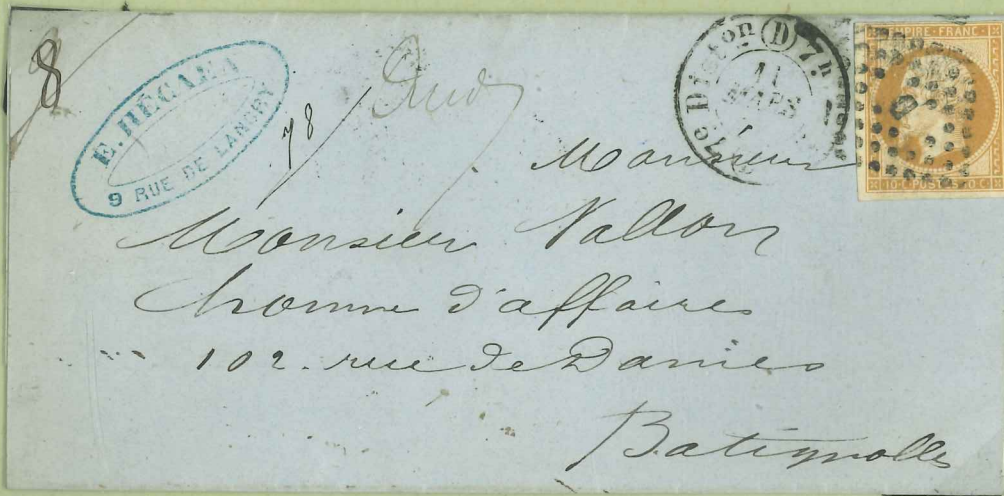 8
E. RÉGAЕ​A
9 RUE DE LANCRY
78
D.ction (D) 7.
11
MARS
PIRE-FRANC
10.c. POSTES 10.C
Monsieur
Monsieur Vallon
homme d'affaires
102. rue de Dames
Batignolles